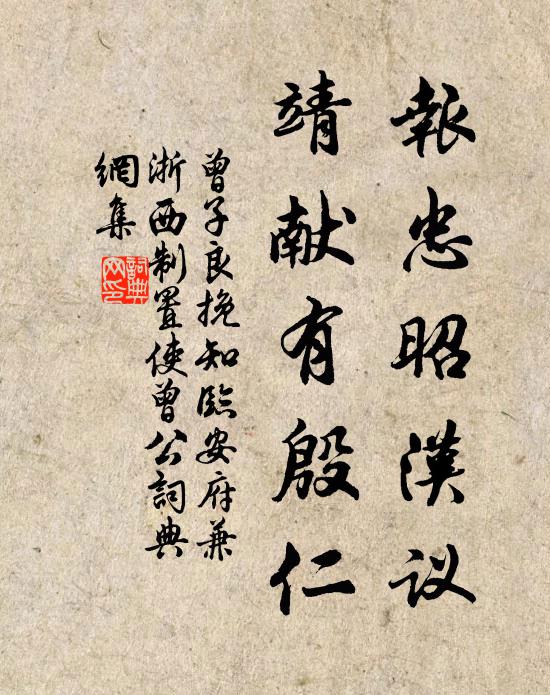 報忠昭漢议
靖献有殷仁
曾子良挽知臨安府兼
浙西制置使曾公詞典
網集
詞典網印